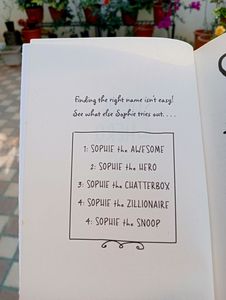 Finding the right name isn't easy!
See what else Sophie tries out. . . .
1: SOPHIE the AWESOME
2: SOPHIE the HERO
3: SOPHIE the CHATTERBOX
4: SOPHIE the ZILLIONAIRE
4: SOPHIE the SNOOP